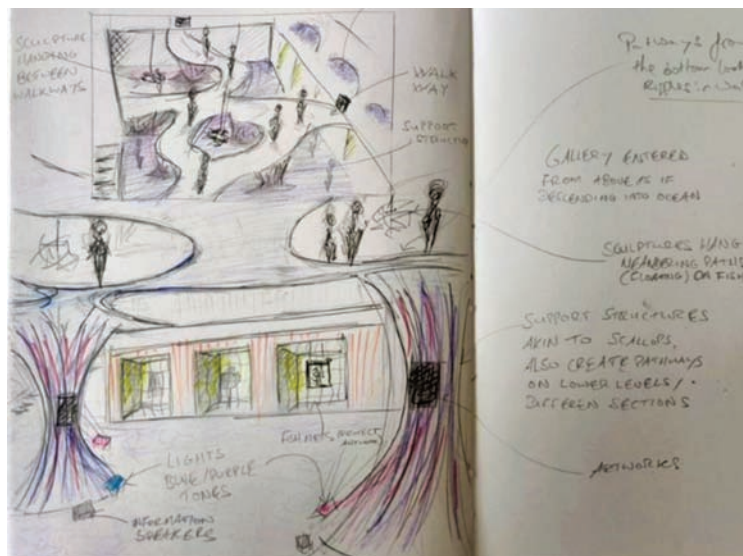 SCULPTURE
HANGING
BETWEEN
WALKWAYS
WALK
WAY
SUPPORT
LIGHTS
BLUE/PURPLE
TONES
INFORMATION
SPEAKERS
Pathways from
the bottom look
Ripples in
GALLERY ENTERED
FROM ABOVE AS IF
DESCENDING INTO OCEAN
SCULPTURES HANG
MEANDERING PATHS
(FLOATING) OR FISH
SUPPORT STRUCTURES
AKIN TO SCALLOPS,
ALSO CREATE PATHWAYS
ON LOWER LEVELS/
DIFFEREN SECTIONS
ARTWORKS